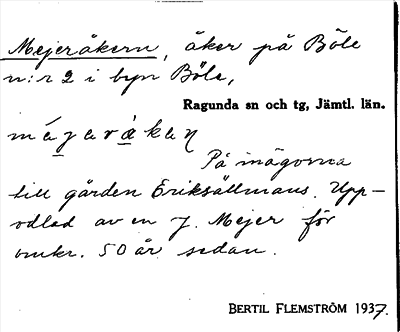 Mejeråkern, åker på Böle
n:r 2 i byn Böle,
Ragunda sn och tg, Jämtl. län.
På inägorna
till gården Eriksällmans. Upp-
odlad av en J. Mejer för
omkr. 50 år sedan.
BERTIL FLEMSTRÖM 1937.